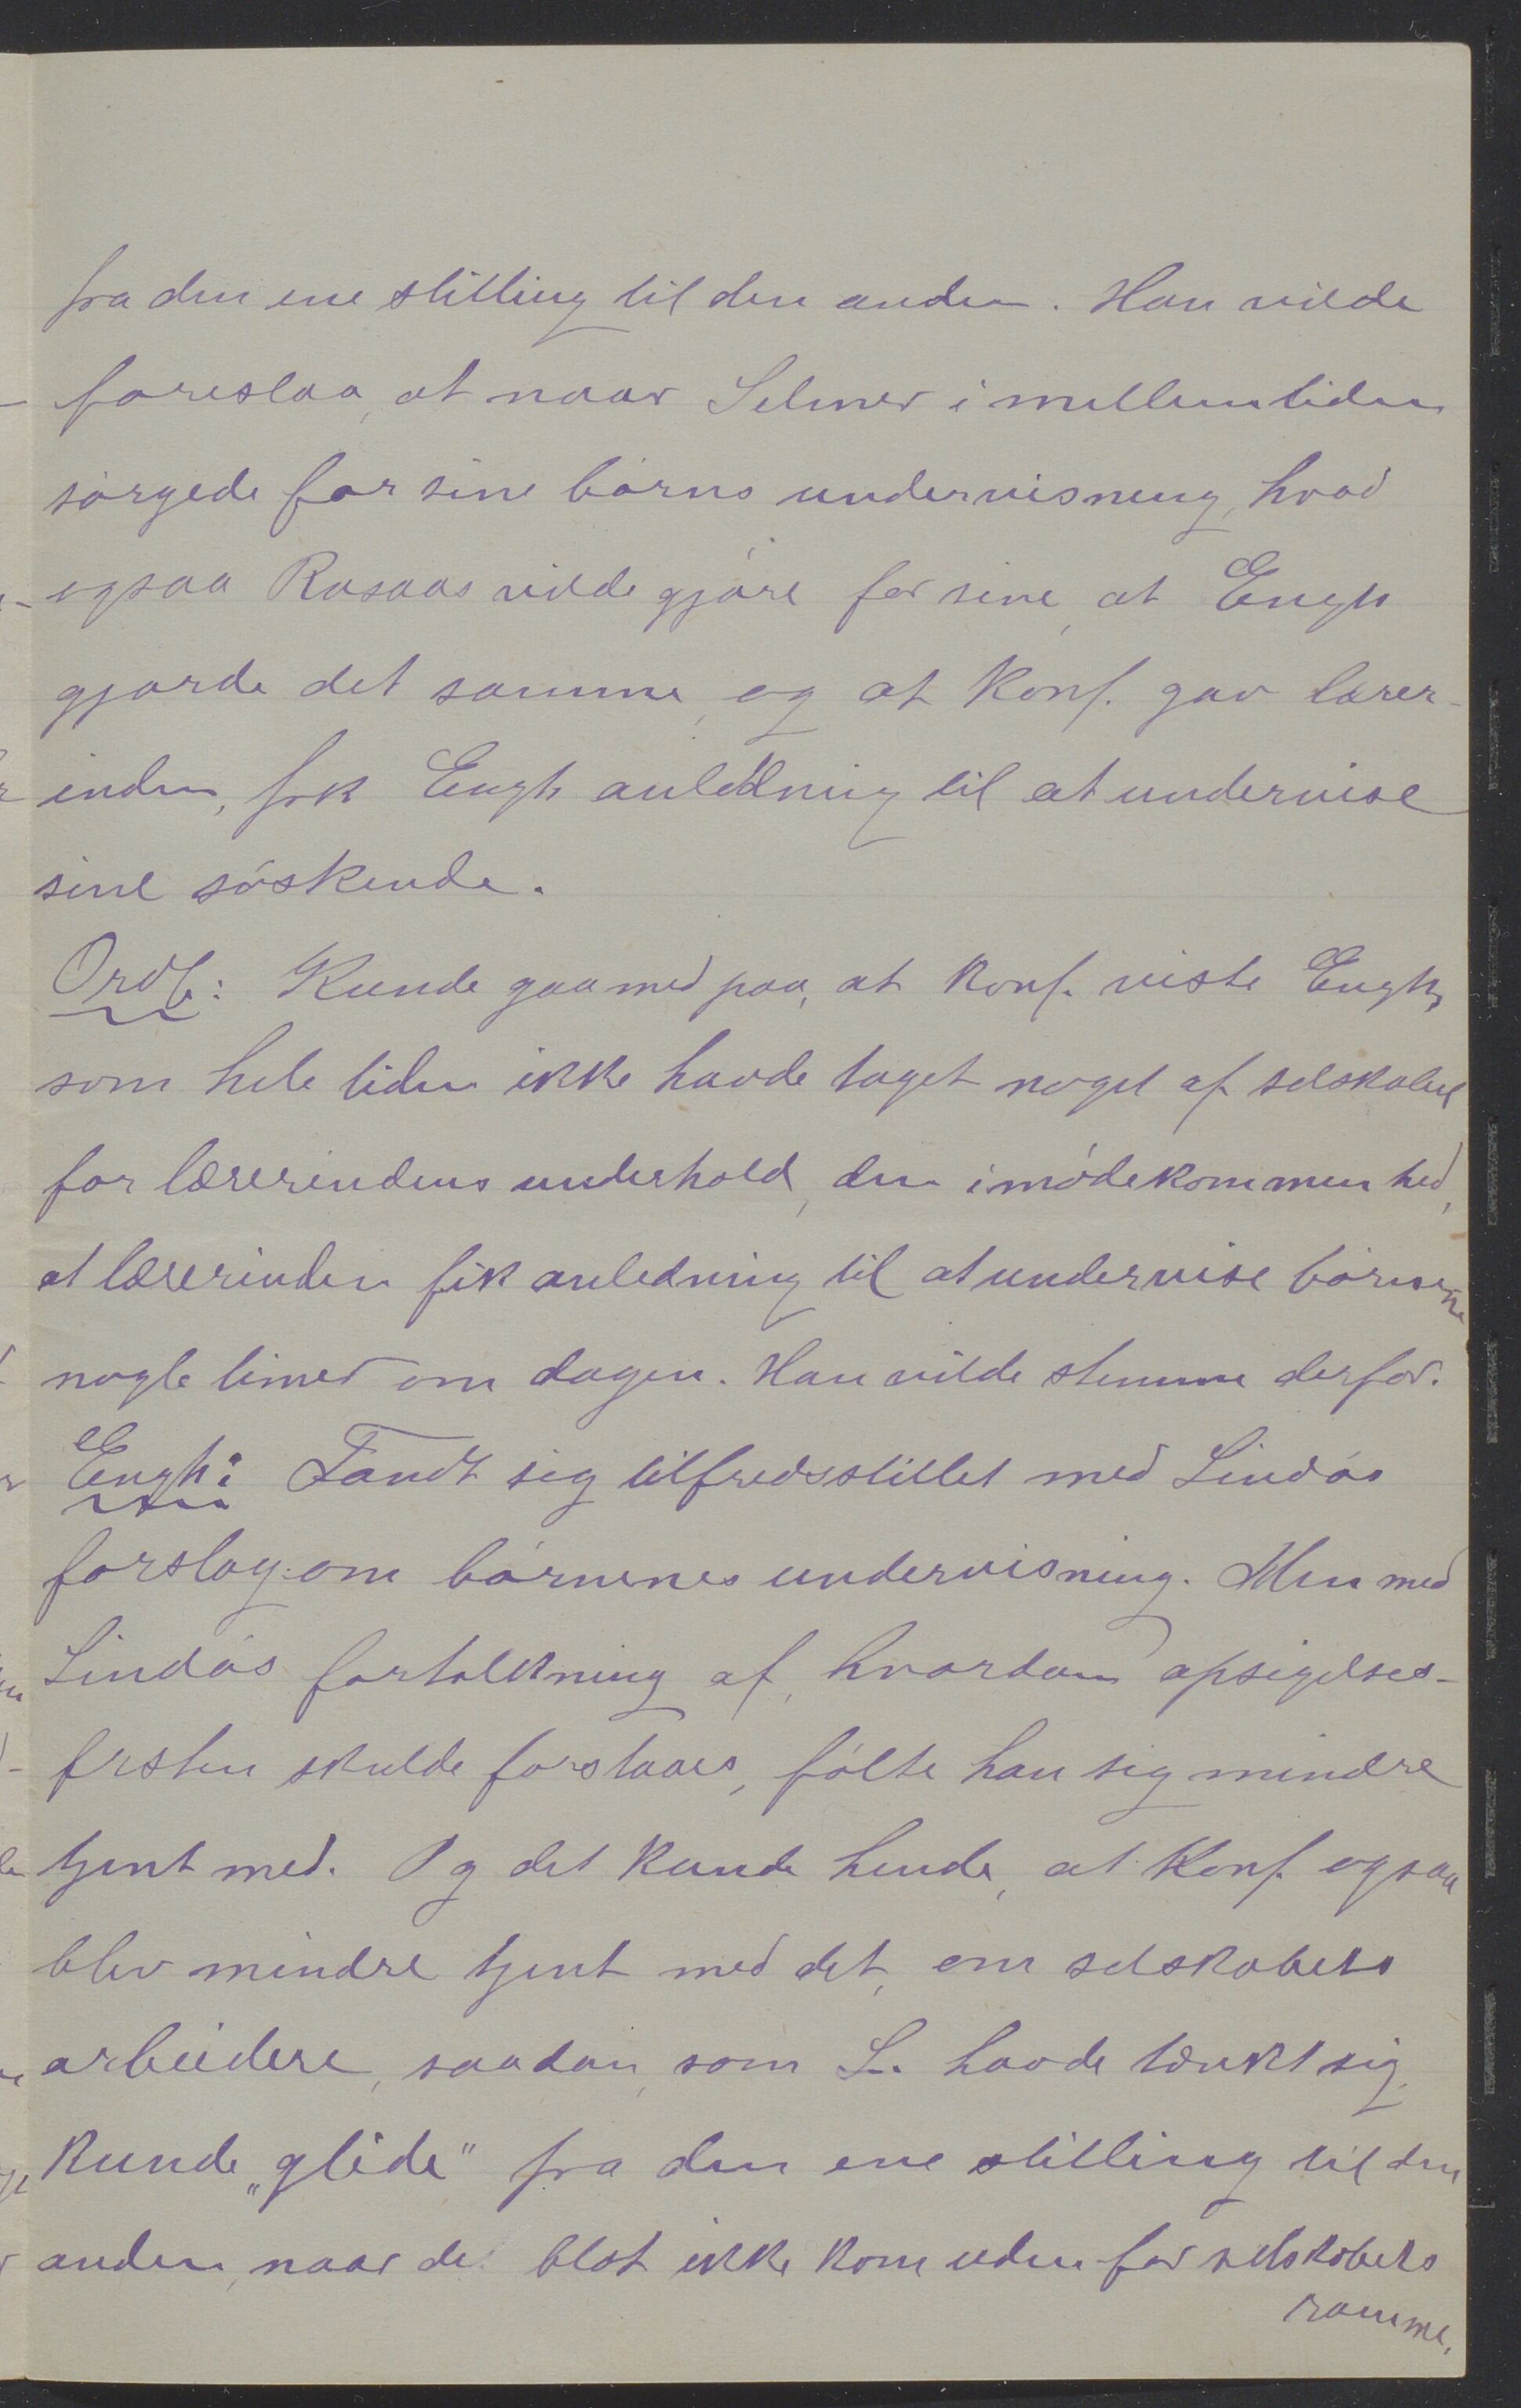 fra den ene stilling til den anden. Han vilde
foreslaa, at naar Selmer i mellemtiden
sørgede for sine børns undervisning, hvad
ogsaa Rosaas vilde gjøre for sine, at Engh
gjorde det samme, og at Konf. gav lærer-
inden, frk Engh anledning til at undervise
sine søskende.
Ordf: Kunde gaa med paa, at Konf. viste Engh,
som hele tiden ikke havde taget noget af selskabet
for lærerindens underhold, den imødekommenhed,
at lærerinden fik anledning til at undervise børnene
nogle timer om dagen. Han vilde stemme derfor.
Engh: Fandt sig tilfredsstillet med Lindøs
forslag om børnenes undervisning. Men med
Lindøs fortolkning af, hvordan opsigelses-
fristen skulde forstaaes, følte han sig mindre
tjent med. Og det kunde hende, at Konf. ogsaa
blev mindre tjent med det, om selskabets
arbeidere, saadan, som L. havde tænkt sig,
kunde „glide" fra den ene stilling til den
anden, naar de blot ikke kom uden for selskabets
ramme.